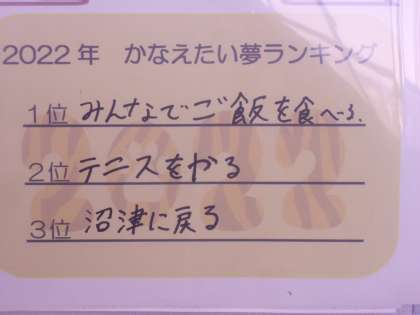 2022年 かなえたい夢ランキング
1位 みんなでご飯を食べる.
2位 テニスをやる
3位 沼津に戻る
2022